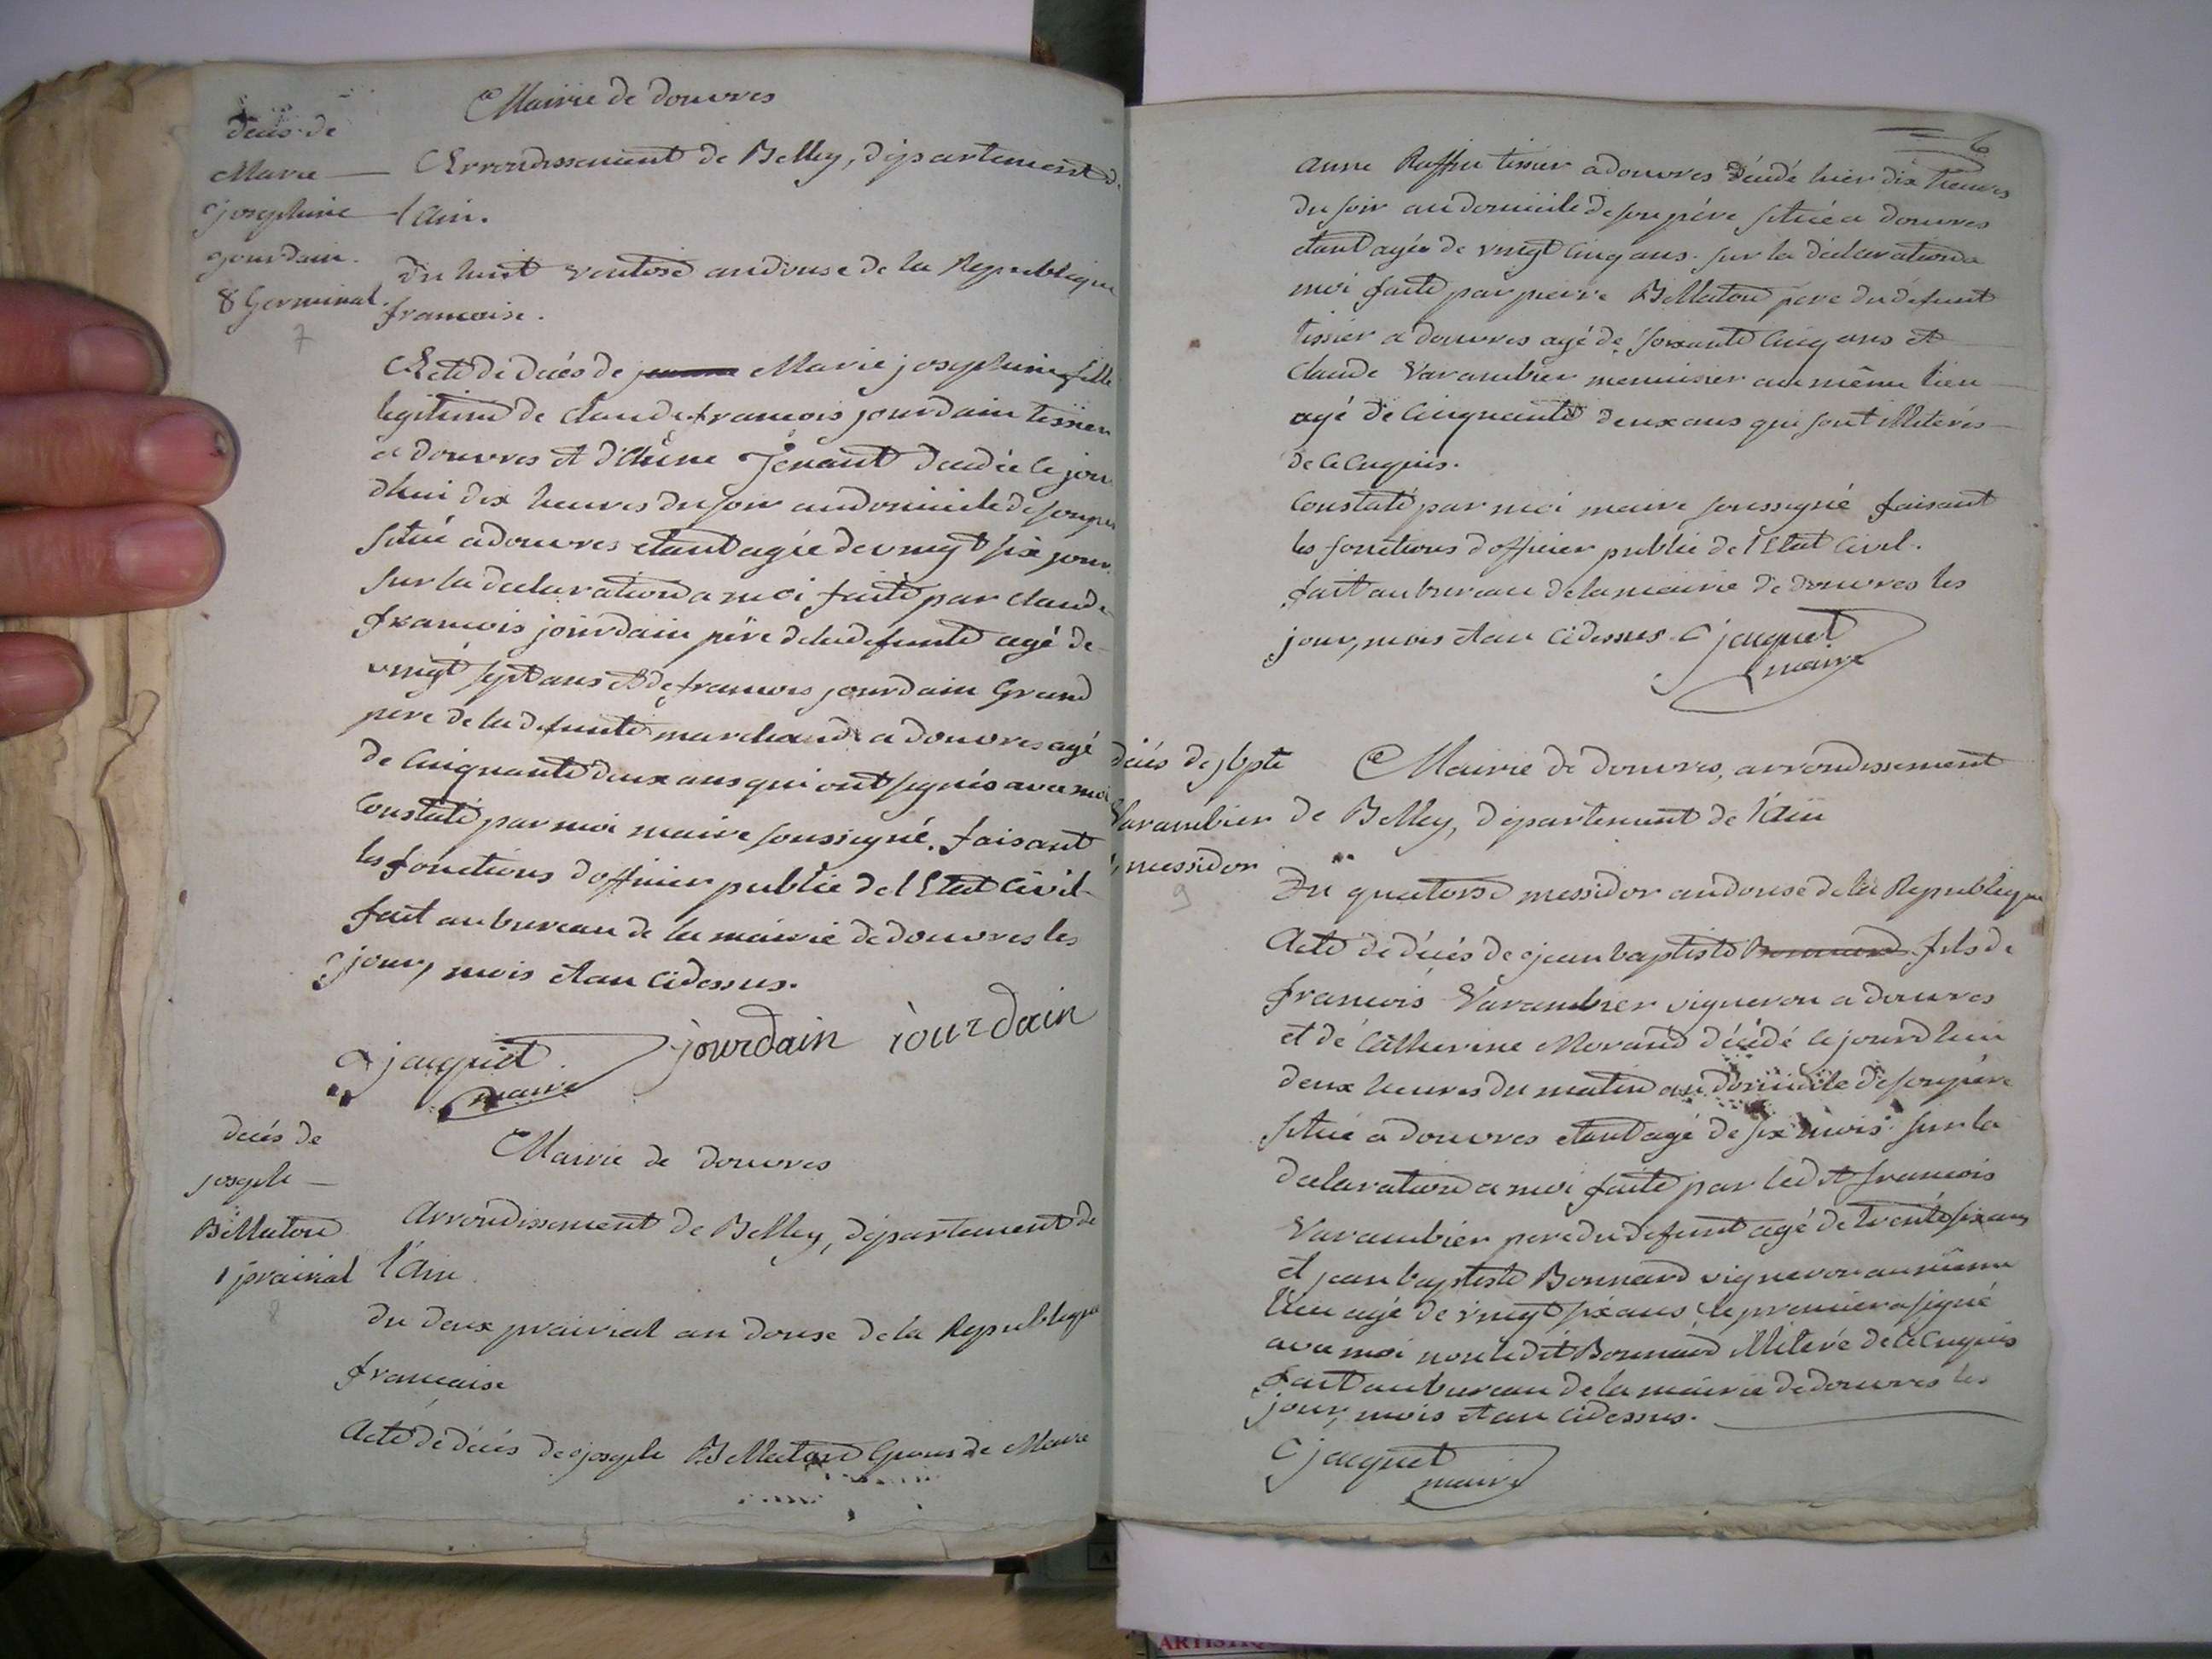 Mairie de douvres
décès de
Marie
josephine
jourdain.
8 Germinal.
7
Arrondissement de Belley, département de
l'Ain.
Du huit ventose an douse de la Republique
francoise.
Acte de decés de Marie josephine fille
legitime de claude francois jourdain tissier
a douvres et d'Anne décédée ce jour
dhui dix heures du soir au domicile de son pere
situé a douvres etant agée de vingt six jours
sur la declaration a moi faite par claude
francois jourdain pére de la defunte agé de
vingt sept ans et de francois jourdain Grand
pere de la defunte marchand a douvres agé
de cinquante deux ans qui ont signés avec moi
Constaté par moi maire soussigné. faisant
les fonctions d'officier public de l'Etat Civil
fait au bureau de la mairie de douvres les
jour, mois et an cidessus.
C jacquet jourdain jourdain
maire
decés de
joseph
Bellaton
1 prairial
8
Mairie de douvres
Arrondissement de Belley, département de
l'Ain
du deux prairial an douse de la Republique
francaise
Acte de décés de joseph Bellaton Epoux de Marie
6
anne tissier a douvres décédé hier dix heures
du soir au domicile de son pére situé a douvres
etant agée de vingt cinq ans. sur la déclaration a
moi faite par pierre Bellaton pere du défunt
tissier a douvres agé de soixante cinq ans et
Claude Varambier menuisier au même lieu
agé de cinquante deux ans qui sont illiterés
de ce enquis.
Constaté par moi maire soussigné faisant
les fonctions d'officier public de l'Etat Civil.
fait au bureau de la mairie de douvres les
jour, mois et an cidessus. C jacquet
maire
décés de jbpte
Varambier
messidor
9
Mairie de douvres, arrondissement
de Belley, département de l'Ain
Du quatorse messidor an douse de la Republique
Acte de décés de jean baptiste Bonnard fils de
francois Varambier vigneron a douvres
et de Catherine Morand décédé ce jourdhui
deux heures du matin au domicile de son pére
situé a douvres etant agé de six mois sur la
declaration a moi faite par led't francois
Varambier pere du defunt agé de trente six ans
et jean baptiste Bonnard vigneron au même
lieu agé de vingt six ans, le premier a signé
avec moi non ledit Bonnard illiteré de ce enquis
fait au bureau de la mairie de douvres les
jour, mois et an cidessus.
C jacquet
maire
ARTISTIQ